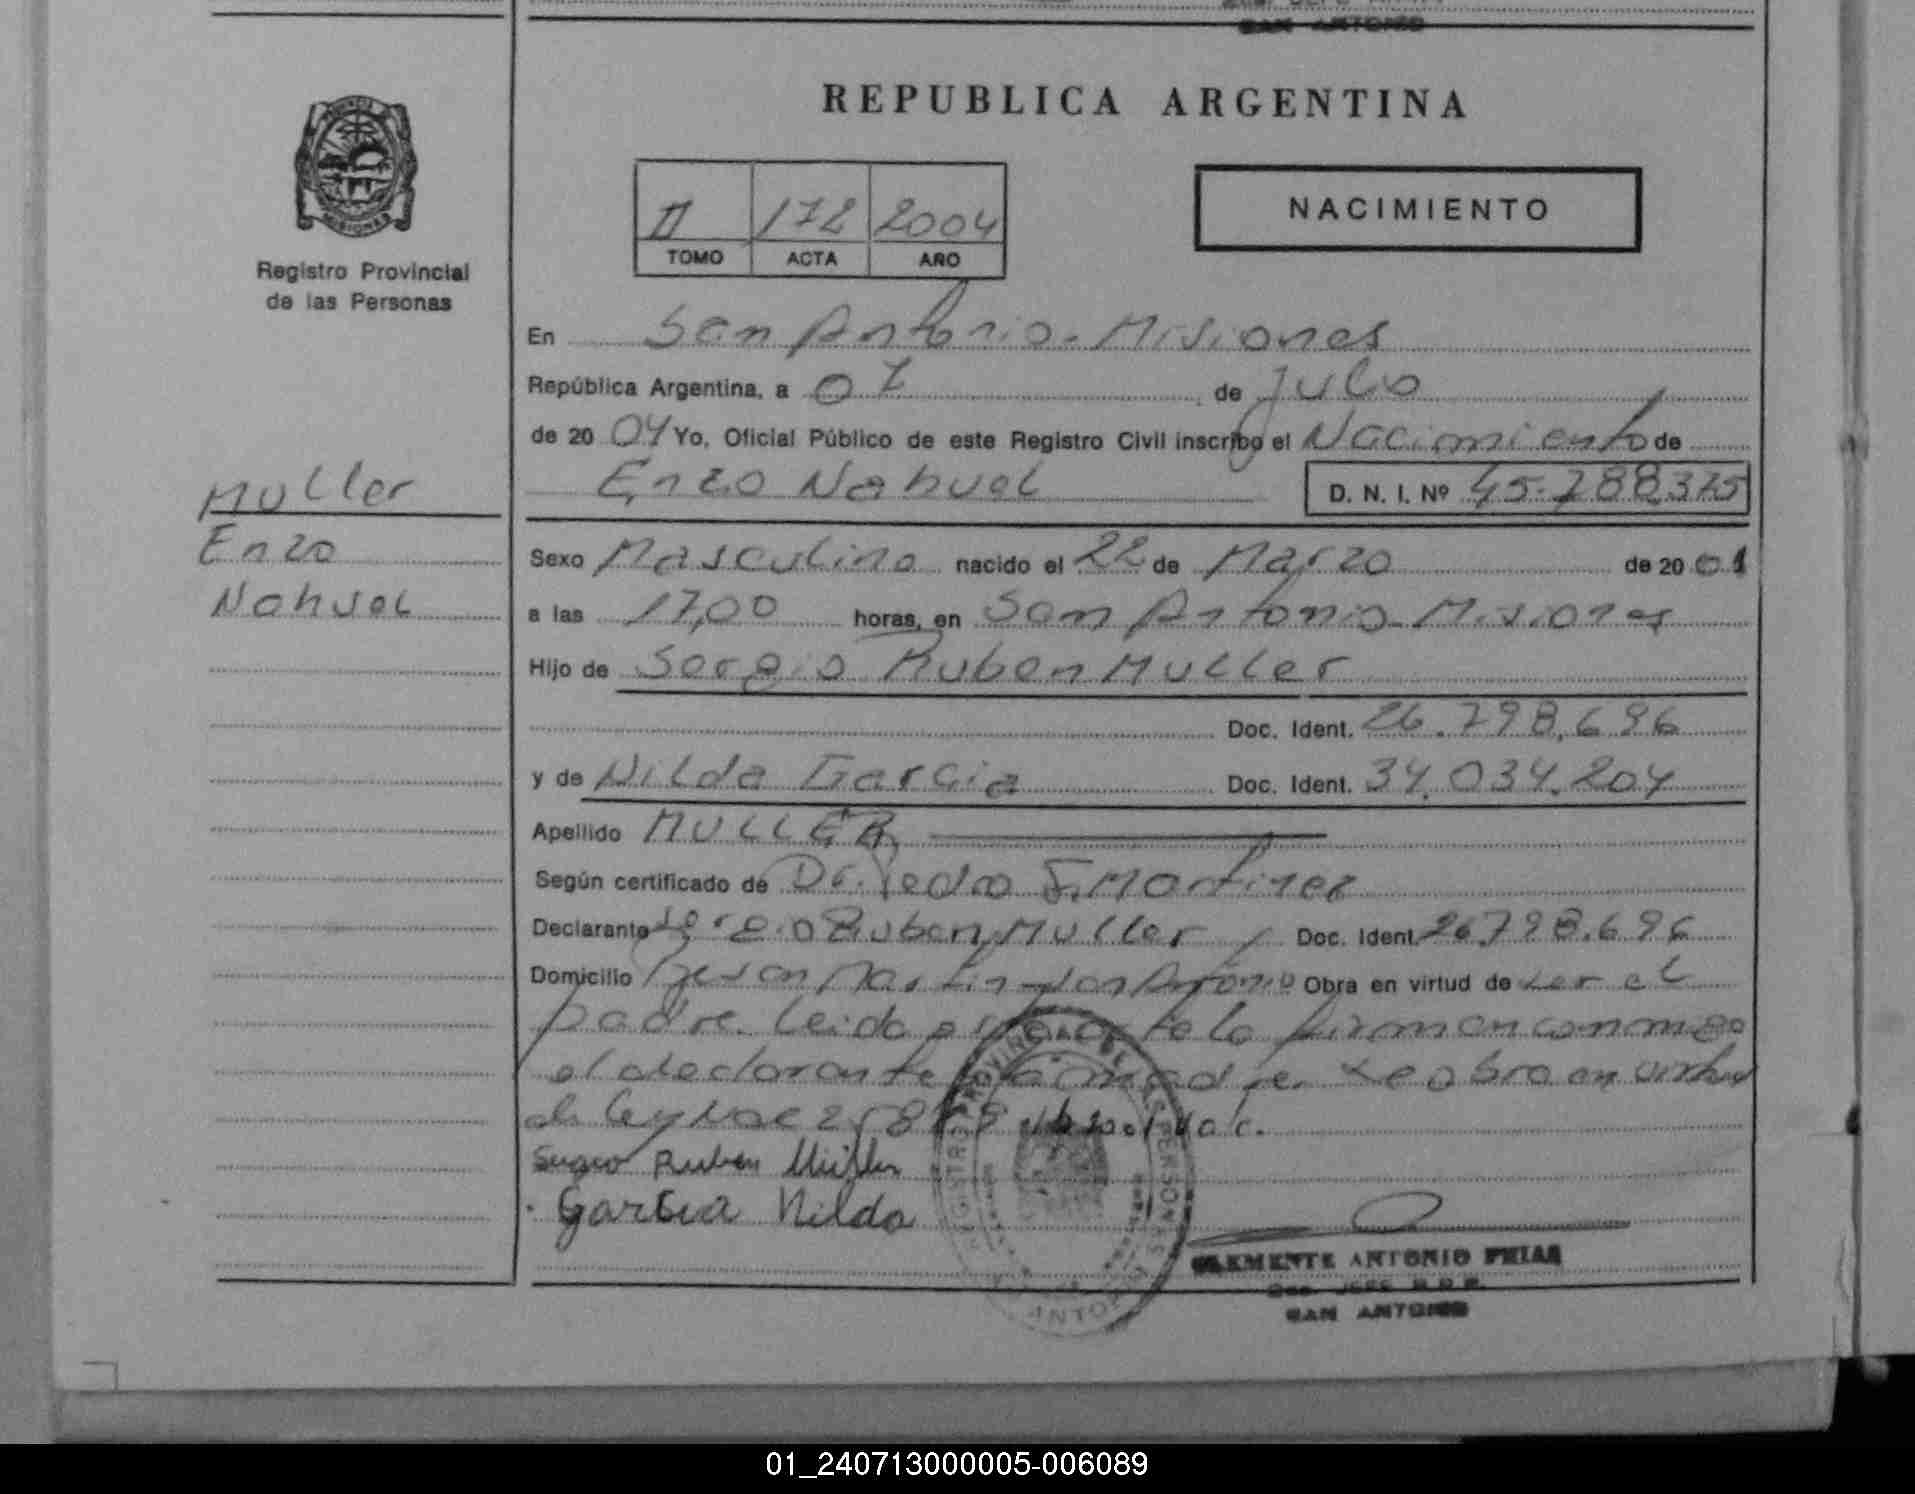 SAN ANTONIO
REPUBLICA ARGENTINA
PROVINCIA
MISIONES
Registro Provincial
de las Personas
II 172 2004
TOMO ACTA AÑO
NACIMIENTO
En San Antonio - Misiones
República Argentina, a 07 de Julio
de 2004 Yo, Oficial Público de este Registro Civil inscribo el Nacimiento de
Enzo Nahuel D. N. I. Nº 45.788.375
Muller
Enzo
Nahuel
Sexo Masculino nacido el 22 de Marzo de 2001
a las 17,00 horas, en San Antonio - Misiones
Hijo de Sergio Ruben Muller
Doc. Ident. 26.798.696
y de Nilda Garcia Doc. Ident. 34.034.204
Apellido MULLER
Según certificado de Dr. Pedro F. Martinez
Declarante Sergio Ruben Muller Doc. Ident. 26.798.696
Domicilio San Martin - San Antonio Obra en virtud de ser el
padre. Leida el acta la firman conmigo
el declarante y la madre. Se obra en virtud
de Ley Nac 25819
Sergio Ruben Muller
Garcia Nilda
REGISTRO PROVINCIAL DE LAS PERSONAS
CLEMENTE ANTONIO FRIAS
JEFE R.P.P.
SAN ANTONIO
01_240713000005-006089